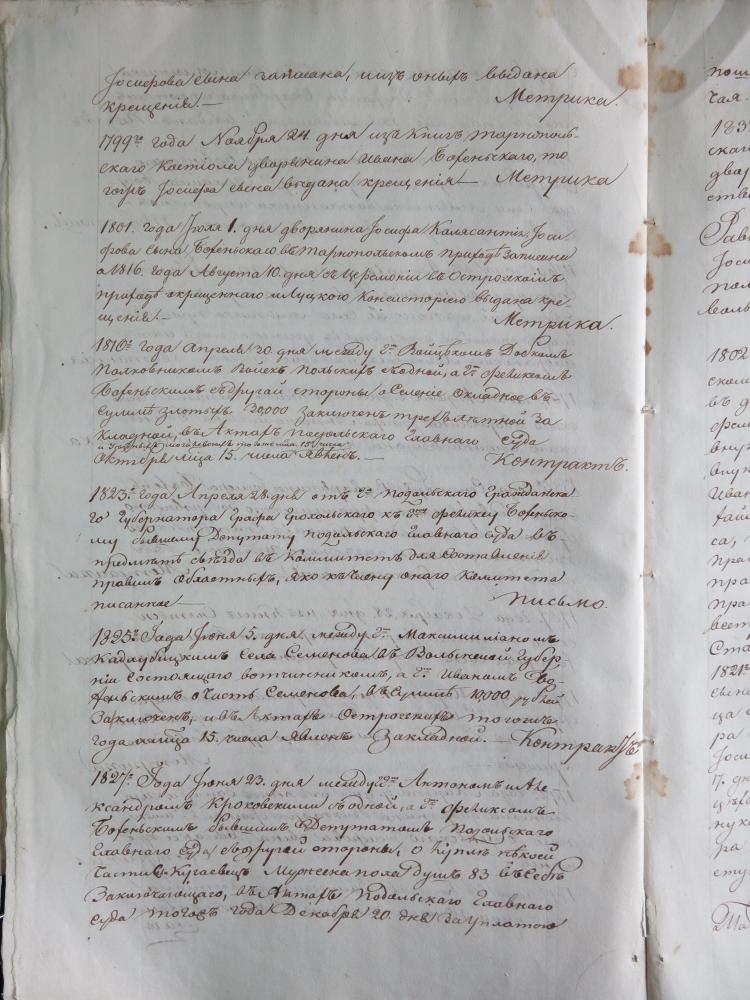 Іосифова сына записана, и изъ оныхъ выдана
крещенія — Метрика.
1799го года Ноября 24. дня изъ Книгъ тарнополь-
скаго Костіола дворянина Ивана Боженьскаго, то
гожъ Іосифа сына выдана крещенія — Метрика
1801. года Іюля 1. дня дворянина Іосифа Калясантія, Іоси
фова сына Боженьскаго въ тарнопольскомъ приходѣ записана
а 1816. года Августа 10. дня съ Церемоніи въ Острожскомъ
приходѣ окрещеннаго и Луцкою Консисторіею выдана кре-
щенія. — Метрика.
1810го года Апреля 20. дня между Гмъ Войцѣхомъ
Полковникомъ Войскъ Польскихъ съ одной, а Гмъ Феликсомъ
Боженьскимъ съ другой стороны о Селеніе Окладное въ-
Суммѣ злотыхъ 30,000 заключенъ трехлѣтной За
кладной, въ Актахъ Подольскаго Главнаго Суда
Октября мца 15. числа явленъ. — Контрактъ.
1823го года Апреля 28. дня отъ Го Подольскаго Гражданска
го Губернатора Графа Грохольскаго къ Феликсу Боженьско-
му бывшему Депутату подольскаго главнаго суда въ-
предметѣ съѣзда въ Коммитетъ для составленія
правилъ Областныхъ, яко къ члену онаго Комитета
писанное — Письмо.
1825го Года Іюня 5. дня между Гмъ Максимиліаномъ
Кадлубицкимъ Села Семенова въ Волынской Губер-
ніи состоящаго вотчинникомъ, а Гмъ Иваномъ Бо-
женьскимъ о Часть Семенова, въ Суммѣ 10,000 рублей
Заключенъ, и въ Актахъ Острожскихъ тогожъ
года мсца 15. числа явленъ Закладной. — Контрактъ
1827го Года Іюня 23. дня между Антономъ и Але-
ксандромъ Кроковскими съ одной, а Гмъ Феликсомъ
Боженьскимъ бывшимъ Депутатомъ Подольскаго
Главнаго Суда съ другой стороны, о куплѣ нѣкоей
Части Кугаевецъ Мужеска пола душъ 83 въ Себѣ
Заключающаго, въ Актахъ Подольскаго Главнаго
суда тогожъ года Декабря 20. дня за уплатою